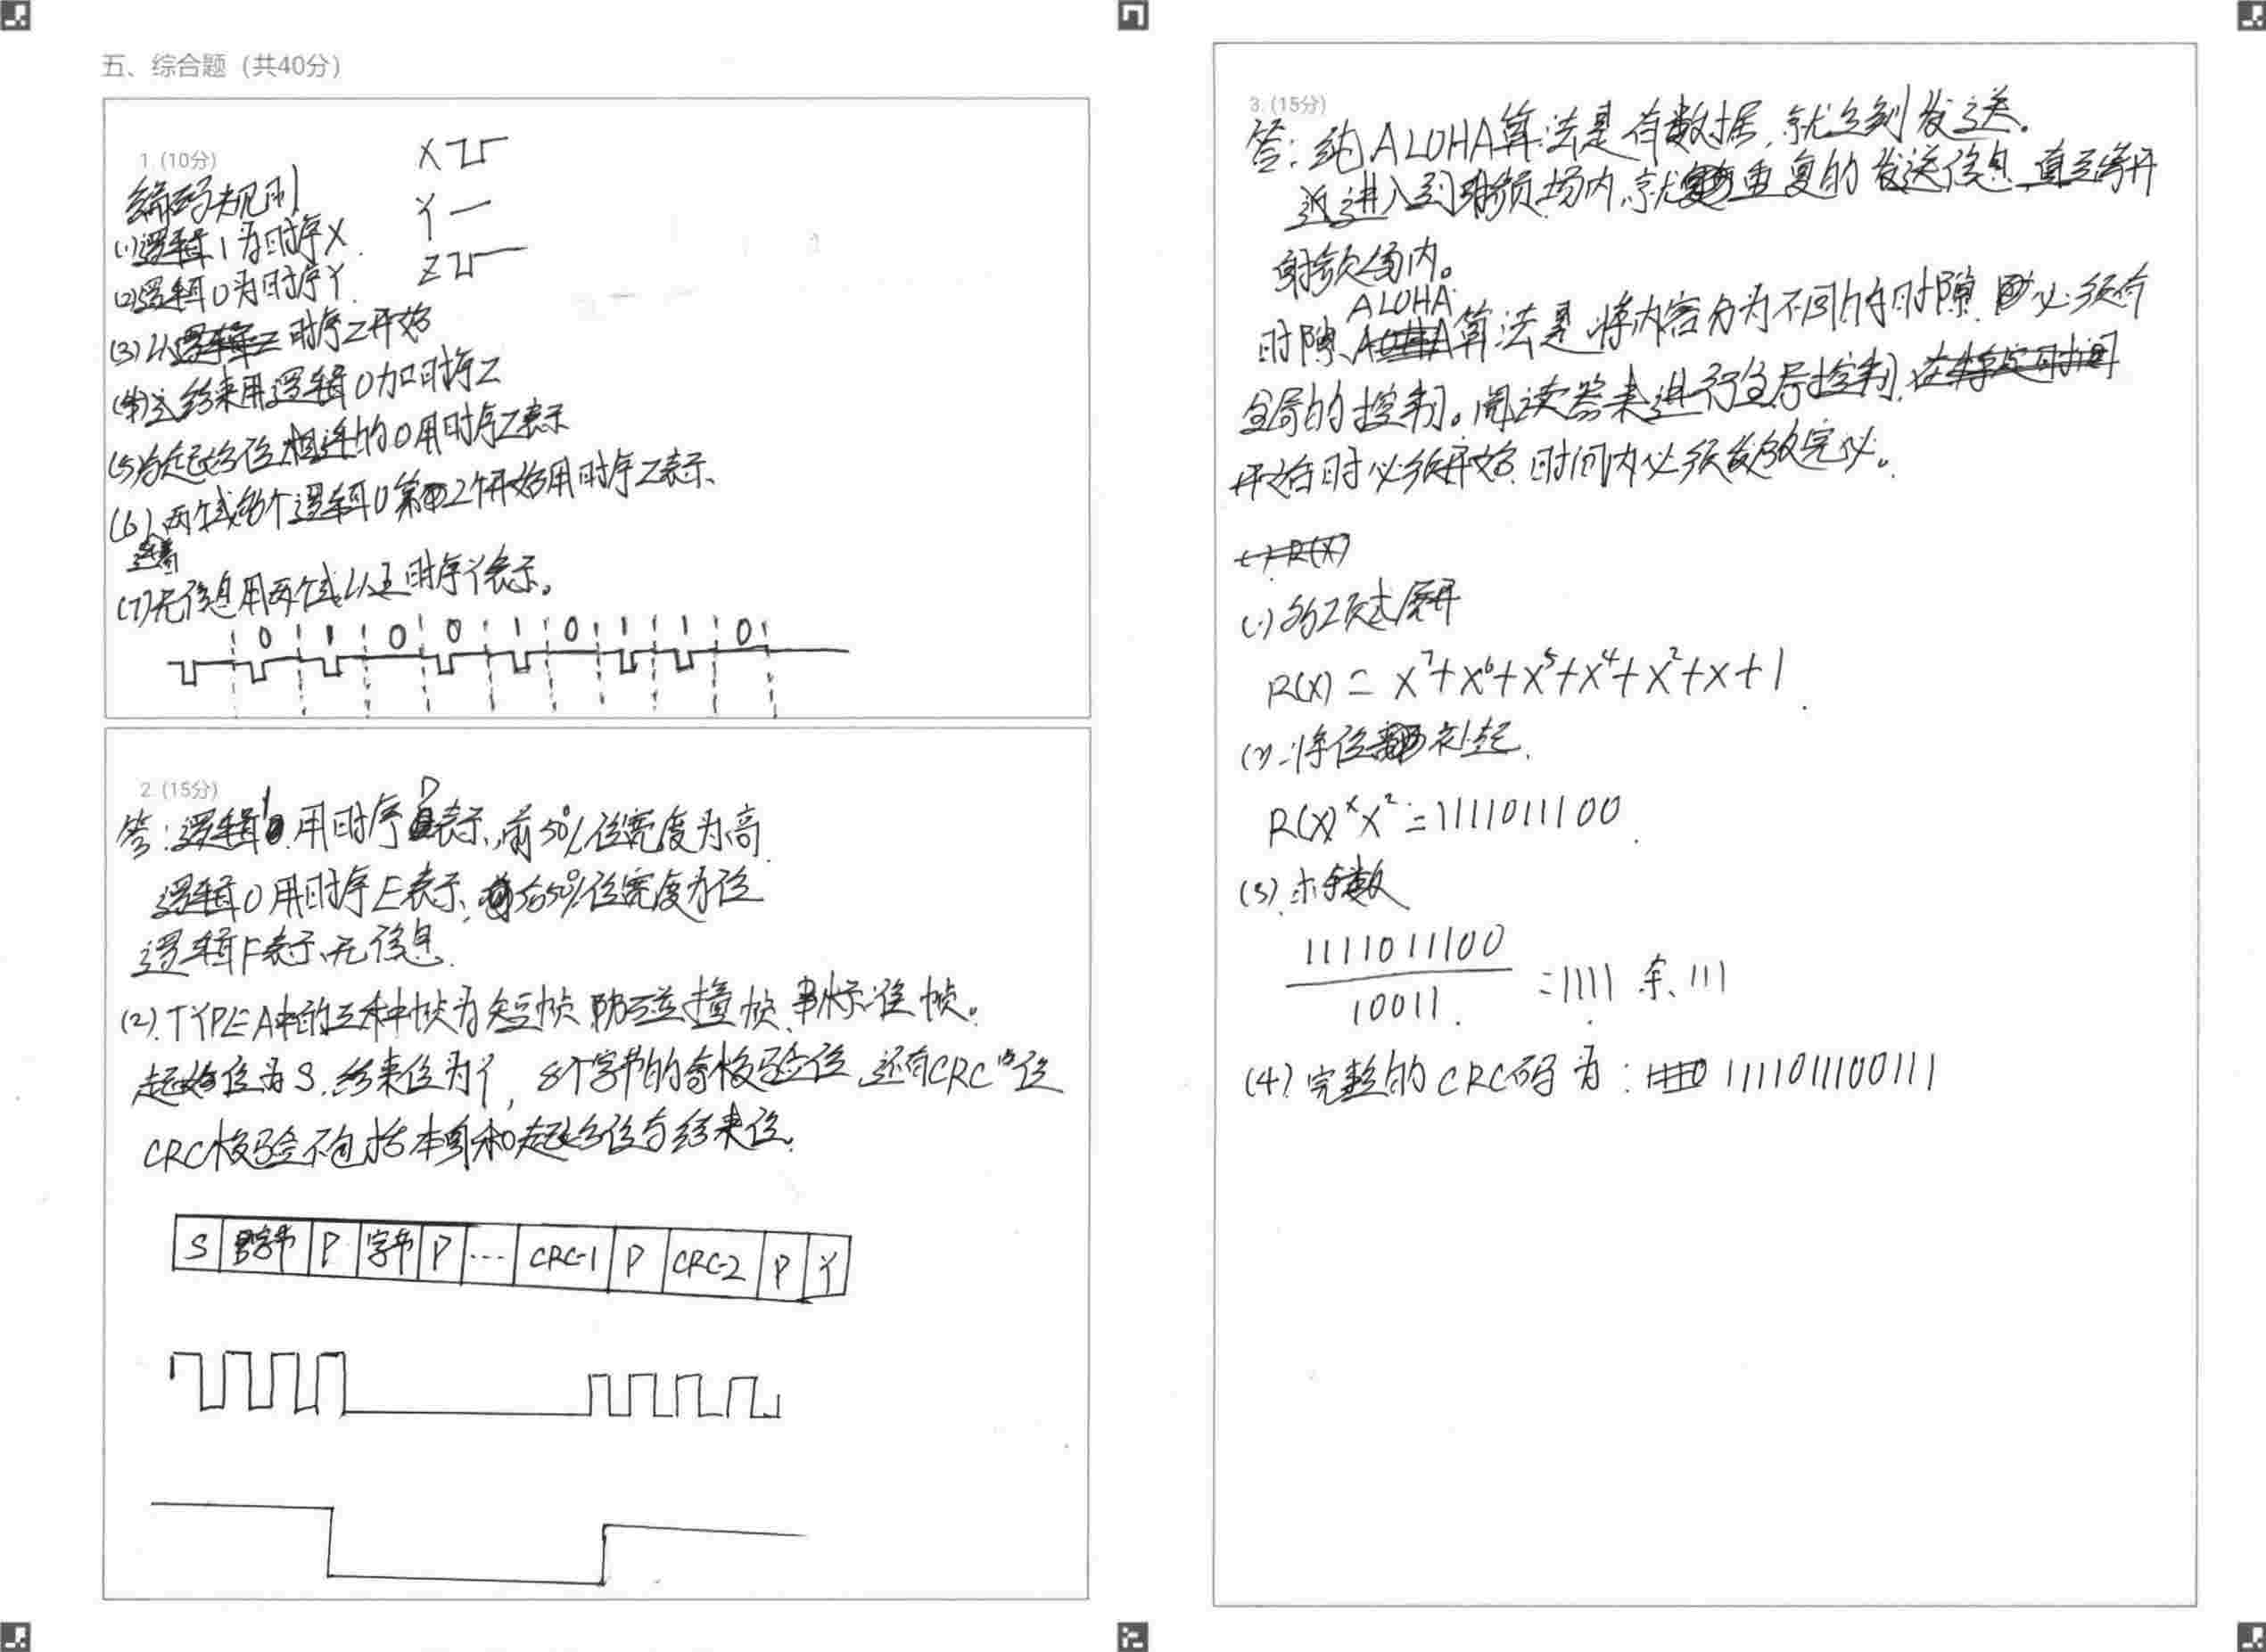 五、综合题（共40分）
1. (10分)
编码规则
X
Y
Z
(1)逻辑1为时序X.
(2)逻辑0为时序Y.
(3)以时序Z开始
(4)结束用逻辑0加时序Z
(5)与起始位相连的0用时序Z表示
(6)两个或多个逻辑0第2个开始用时序Z表示、
连着
(7)无信息用两个或以上时序Y表示。
0 1 0 0 1 0 1 1 0
2. (15分)
答:逻辑1用时序D表示,前50%位宽度为高
逻辑0用时序E表示,后50%位宽度为位
逻辑F表示无信息.
(2).TYPEA中的三种帧为短帧 防碰撞帧、标准帧。
起始位为S.结束位为Y, 8个字节的奇校验位,还有CRC 位
CRC校验不包括本身和起始位与结束位.
S 字节 P 字节 P ... CRC-1 P CRC-2 P Y
3. (15分)
答:纯ALOHA算法是有数据,就立刻发送。
进入到射频场内,就重复的发送信息,直至离开
射频场内。
ALOHA
时隙算法是将内容分为不同的时隙.必须有
全局的控制。阅读器来进行全局控制,
开始时必须开始.时间内必须发放完必。
(1)多项式展开
R(X) = X⁷+X⁶+X⁵+X⁴+X²+X+1.
(2)将位补起.
R(X)×X²=1111011100.
(3).求余数
1111011100
10011.
=1111 余 111
(4)完整的CRC码为: 1111011100111